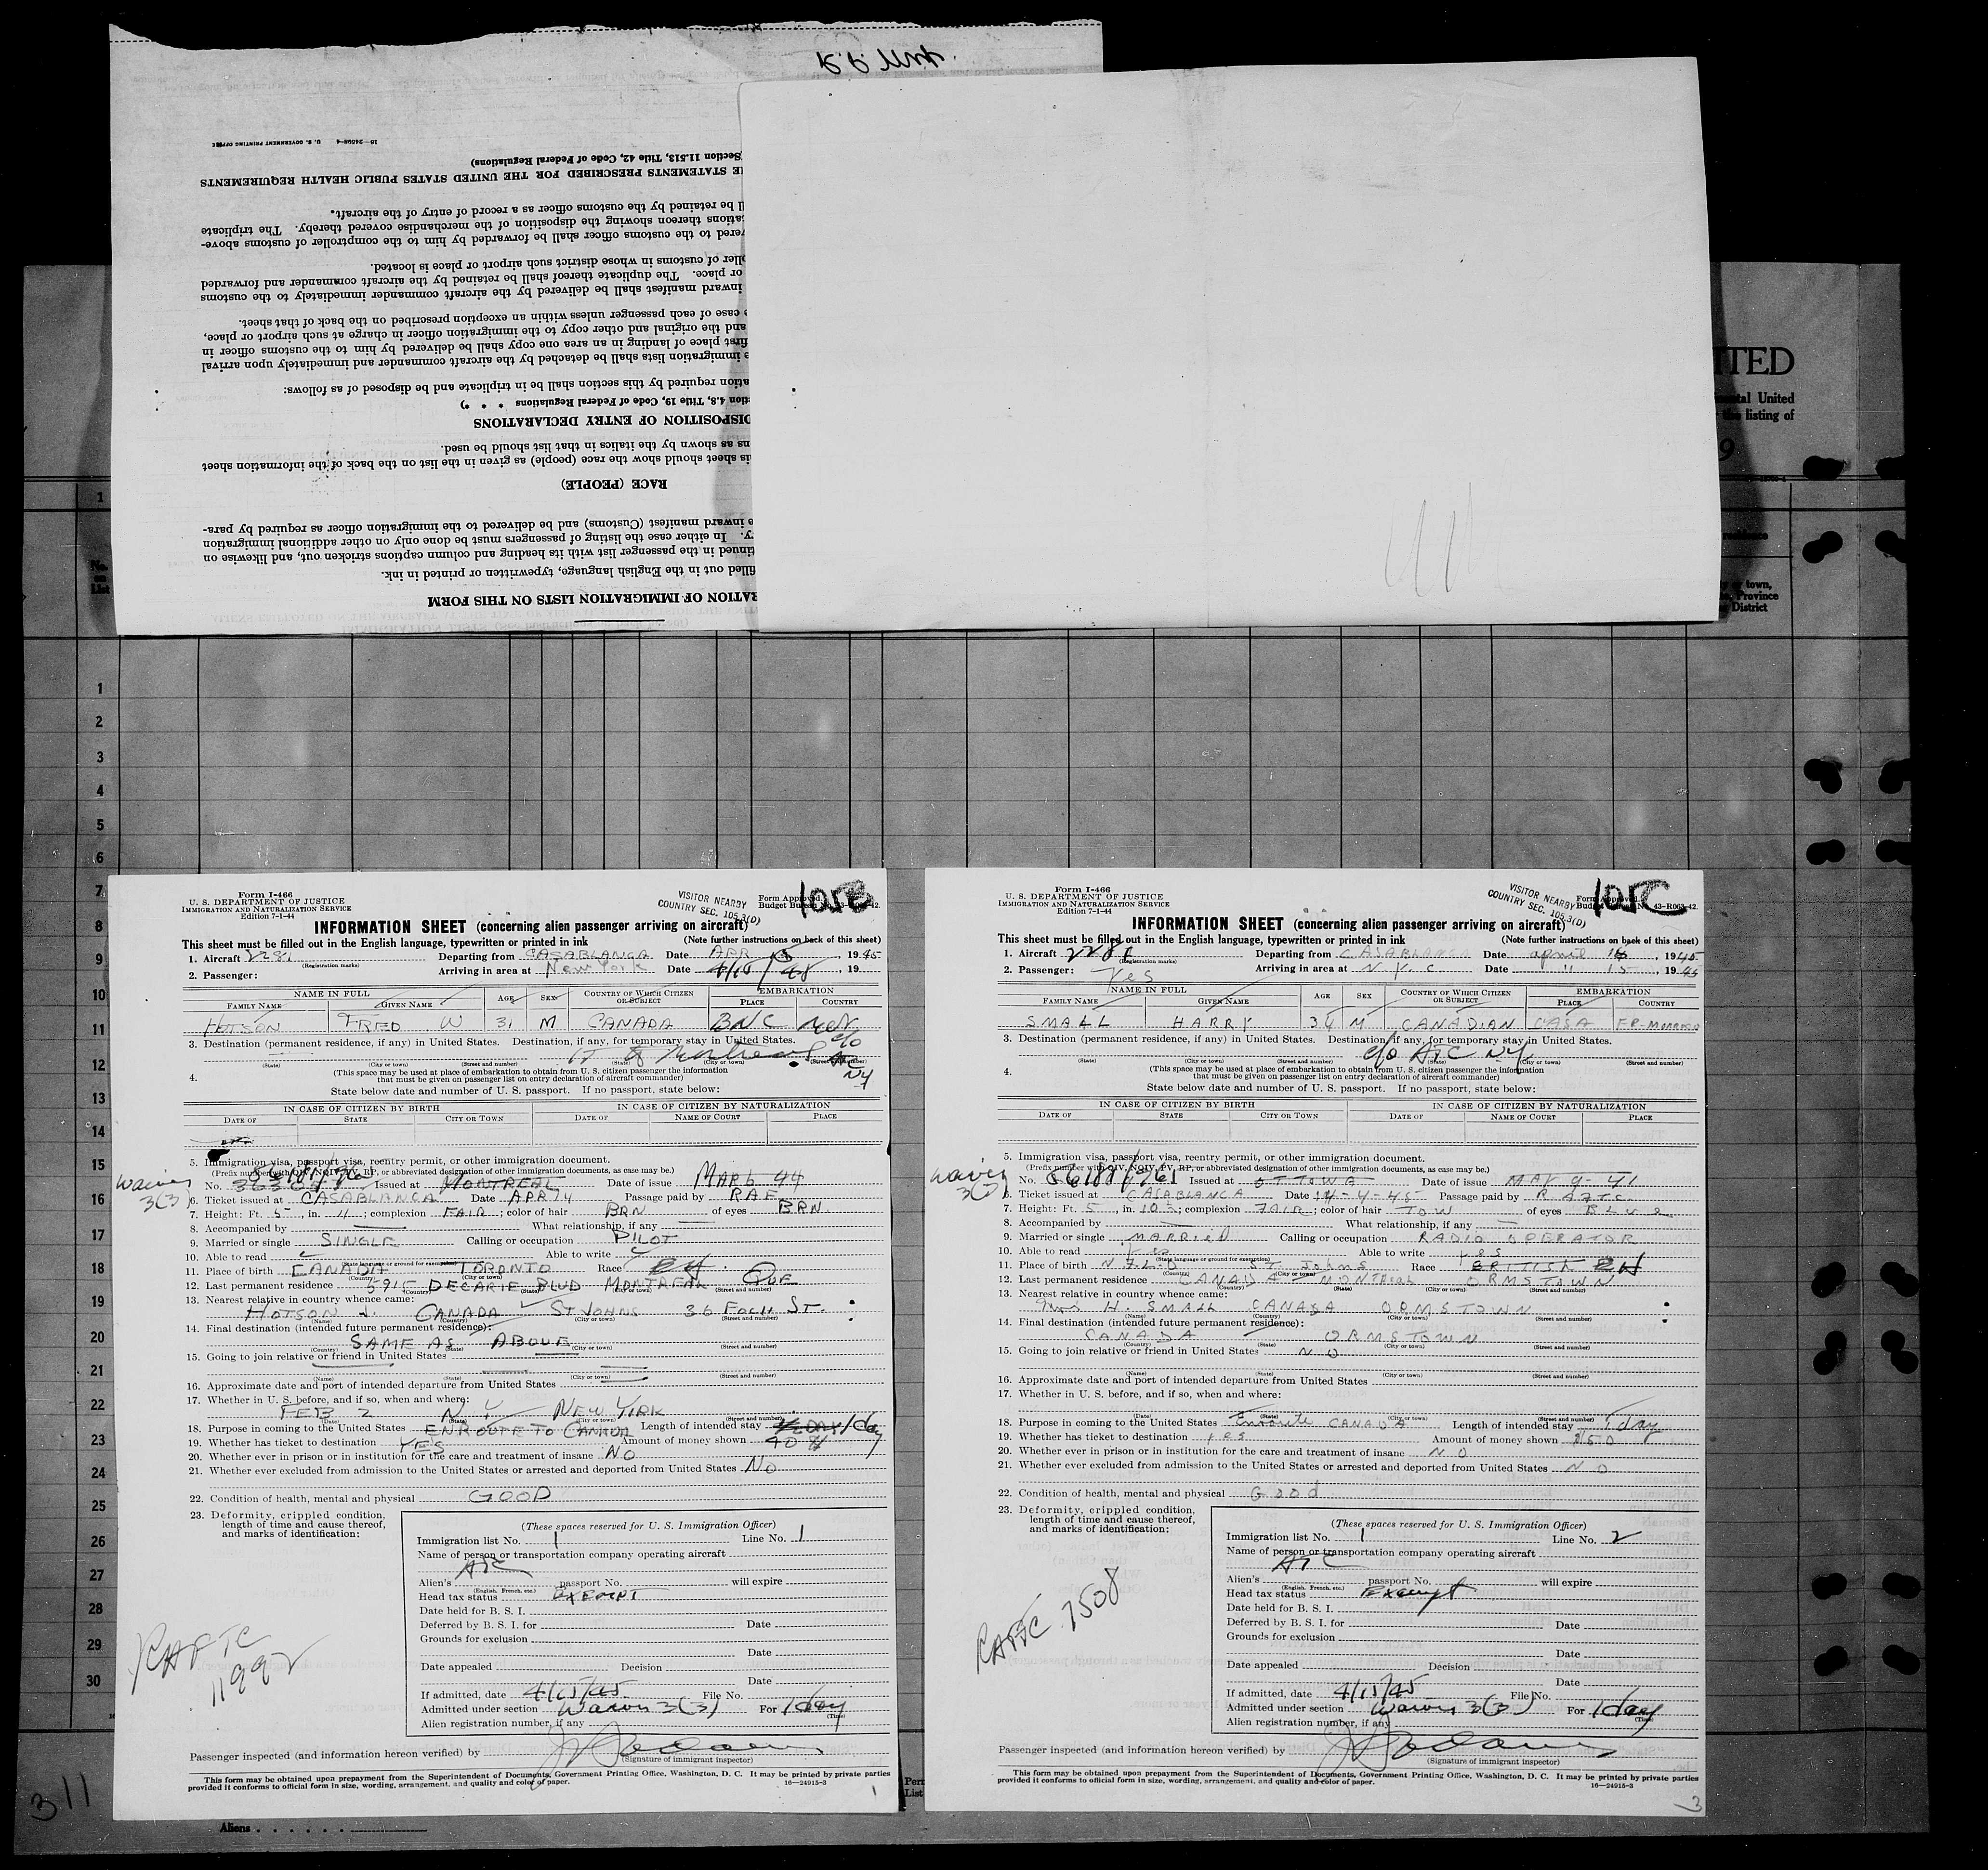 R.P. 
16—24598-4 U. S. GOVERNMENT PRINTING OFFICE
Section 11.513, Title 42, Code of Federal Regulations)
E STATEMENTS PRESCRIBED FOR THE UNITED STATES PUBLIC HEALTH REQUIREMENTS
be retained by the customs officer as a record of entry of the aircraft.
thereon showing the disposition of the merchandise covered thereby. The triplicate
to the customs officer shall be forwarded by him to the comptroller of customs above-
of customs in whose district such airport or place is located.
or place. The duplicate thereof shall be retained by the aircraft commander and forwarded
inward manifest shall be delivered by the aircraft commander immediately to the customs
case of each passenger unless within an exception prescribed on the back of that sheet.
and the original and other copy to the immigration officer in charge at such airport or place,
first place of landing in an area one copy shall be delivered by him to the customs officer in
immigration lists shall be detached by the aircraft commander and immediately upon arrival
required by this section shall be in triplicate and be disposed of as follows:
4.8, Title 19, Code of Federal Regulations * * *)
DISPOSITION OF ENTRY DECLARATIONS
as shown by the italics in that list should be used.
sheet should show the race (people) as given in the list on the back of the information sheet
RACE (PEOPLE)
inward manifest (Customs) and be delivered to the immigration officer as required by para-
In either case the listing of passengers must be done only on other additional immigration
in the passenger list with its heading and column captions stricken out, and likewise on
filled out in the English language, typewritten or printed in ink.
OF IMMIGRATION LISTS ON THIS FORM
TED
United
the listing of
9
No. on List
town,
Province
District
1
2
3
4
5
6
7
8
9
10
11
12
13
14
15
16
17
18
19
20
21
22
23
24
25
26
27
28
29
30
Form I-466
U. S. DEPARTMENT OF JUSTICE
IMMIGRATION AND NATURALIZATION SERVICE
Edition 7-1-44
VISITOR NEARBY
COUNTRY SEC. 105.3(D)
Form Approved.
105B
INFORMATION SHEET (concerning alien passenger arriving on aircraft)
This sheet must be filled out in the English language, typewritten or printed in ink (Note further instructions on back of this sheet)
1. Aircraft 2281 (Registration marks) Departing from CASABLANCA Date APR , 1945
2. Passenger: Arriving in area at New York Date , 19
NAME IN FULL AGE SEX COUNTRY OF WHICH CITIZEN OR SUBJECT EMBARKATION
FAMILY NAME GIVEN NAME PLACE COUNTRY
HOTSON FRED W 31 M CANADA BNC
3. Destination (permanent residence, if any) in United States. Destination, if any, for temporary stay in United States.
c/o ATC NY
(State) (City or town) (Street and number) (State) (City or town) (Street and number)
4. (This space may be used at place of embarkation to obtain from U. S. citizen passenger the information
that must be given on passenger list on entry declaration of aircraft commander)
State below date and number of U. S. passport. If no passport, state below:
IN CASE OF CITIZEN BY BIRTH IN CASE OF CITIZEN BY NATURALIZATION
DATE OF STATE CITY OR TOWN DATE OF NAME OF COURT PLACE
5. Immigration visa, passport visa, reentry permit, or other immigration document.
(Prefix number with QIV, NQIV, PV, RP, or abbreviated designation of other immigration documents, as case may be.)
waiver 3(3)
No. Issued at MONTREAL Date of issue MAR 6 44
6. Ticket issued at CASABLANCA Date APR 14 Passage paid by RAF
7. Height: Ft. 5, in. 11; complexion FAIR; color of hair BRN of eyes BRN.
8. Accompanied by What relationship, if any
9. Married or single SINGLE Calling or occupation PILOT
10. Able to read ✓ Able to write ✓
(State language or ground for exemption)
11. Place of birth CANADA TORONTO Race
(Country) (City or town)
12. Last permanent residence 5915 DECARIE BLVD MONTREAL QUE
(Country) (State) (City or town) (Street and number)
13. Nearest relative in country whence came:
HOTSON J. CANADA ST JOHNS 36 FOCH ST.
(Name) (Country) (City or town) (Street and number)
14. Final destination (intended future permanent residence):
SAME AS ABOVE
(Country) (State) (City or town) (Street and number)
15. Going to join relative or friend in United States
(Name) (State) (City or town) (Street and number)
16. Approximate date and port of intended departure from United States
17. Whether in U. S. before, and if so, when and where:
FEB 2 N.Y NEW YORK
(Date) (State) (City or town) (Street and number)
18. Purpose in coming to the United States ENROUTE TO CANADA Length of intended stay 1 day
19. Whether has ticket to destination YES Amount of money shown 40 $
20. Whether ever in prison or in institution for the care and treatment of insane NO
21. Whether ever excluded from admission to the United States or arrested and deported from United States NO
22. Condition of health, mental and physical GOOD
23. Deformity, crippled condition,
length of time and cause thereof,
and marks of identification:
(These spaces reserved for U. S. Immigration Officer)
Immigration list No. 1 Line No. 1
Name of person or transportation company operating aircraft
ATC
Alien's passport No. will expire
(English, French, etc.)
Head tax status EXEMPT
Date held for B. S. I.
Deferred by B. S. I. for Date
Grounds for exclusion
Date
Date appealed Decision
Date
If admitted, date 4/15/45 File No.
Admitted under section Waiver 3(3) For 1 day
(Time)
Alien registration number, if any
RAFTC 1992
Passenger inspected (and information hereon verified) by
(Signature of immigrant inspector)
This form may be obtained upon prepayment from the Superintendent of Documents, Government Printing Office, Washington, D. C. It may be printed by private parties
provided it conforms to official form in size, wording, arrangement, and quality and color of paper. 16—24915-3
1
Form I-466
U. S. DEPARTMENT OF JUSTICE
IMMIGRATION AND NATURALIZATION SERVICE
Edition 7-1-44
VISITOR NEARBY
COUNTRY SEC. 105.3(D)
43-R063-42.
105C
INFORMATION SHEET (concerning alien passenger arriving on aircraft)
This sheet must be filled out in the English language, typewritten or printed in ink (Note further instructions on back of this sheet)
1. Aircraft 2281 (Registration marks) Departing from CASABLANCA Date april , 1945
2. Passenger: Yes Arriving in area at N.Y.C Date " 15, 1945
NAME IN FULL AGE SEX COUNTRY OF WHICH CITIZEN OR SUBJECT EMBARKATION
FAMILY NAME GIVEN NAME PLACE COUNTRY
SMALL HARRY 34 M CANADIAN CASA FR-MOROCCO
3. Destination (permanent residence, if any) in United States. Destination, if any, for temporary stay in United States.
c/o ATC NY
(State) (City or town) (Street and number) (State) (City or town) (Street and number)
4. (This space may be used at place of embarkation to obtain from U. S. citizen passenger the information
that must be given on passenger list on entry declaration of aircraft commander)
State below date and number of U. S. passport. If no passport, state below:
IN CASE OF CITIZEN BY BIRTH IN CASE OF CITIZEN BY NATURALIZATION
DATE OF STATE CITY OR TOWN DATE OF NAME OF COURT PLACE
5. Immigration visa, passport visa, reentry permit, or other immigration document.
(Prefix number with QIV, NQIV, PV, RP, or abbreviated designation of other immigration documents, as case may be.)
waiver 3(3)
No. Issued at OTTOWA Date of issue MAY 9-41
6. Ticket issued at CASABLANCA Date 14-4-45 Passage paid by R.A.F.T.C.
7. Height: Ft. 5, in. 10 ½; complexion FAIR; color of hair TOW of eyes BLUE
8. Accompanied by What relationship, if any
9. Married or single MARRIED Calling or occupation RADIO OPERATOR
10. Able to read Yes Able to write Yes
(State language or ground for exemption)
11. Place of birth N.F.L.D ST. Johns Race BRITISH
(Country) (City or town)
12. Last permanent residence CANADA MONTREAL ORMSTOWN
(Country) (State) (City or town) (Street and number)
13. Nearest relative in country whence came:
Mrs H. SMALL CANADA ORMSTOWN
(Name) (Country) (City or town) (Street and number)
14. Final destination (intended future permanent residence):
CANADA ORMSTOWN
(Country) (State) (City or town) (Street and number)
15. Going to join relative or friend in United States NO
(Name) (State) (City or town) (Street and number)
16. Approximate date and port of intended departure from United States
17. Whether in U. S. before, and if so, when and where:
(Date) (State) (City or town) (Street and number)
18. Purpose in coming to the United States Enroute CANADA Length of intended stay 1 day
19. Whether has ticket to destination yes Amount of money shown $150
20. Whether ever in prison or in institution for the care and treatment of insane NO
21. Whether ever excluded from admission to the United States or arrested and deported from United States NO
22. Condition of health, mental and physical Good
23. Deformity, crippled condition,
length of time and cause thereof,
and marks of identification:
(These spaces reserved for U. S. Immigration Officer)
Immigration list No. 1 Line No. 2
Name of person or transportation company operating aircraft
ATC
Alien's passport No. will expire
(English, French, etc.)
Head tax status Exempt
Date held for B. S. I.
Deferred by B. S. I. for Date
Grounds for exclusion
Date
Date appealed Decision
Date
If admitted, date 4/15/45 File No.
Admitted under section Waiver 3(3) For 1 day
(Time)
Alien registration number, if any
RAFTC 7508
Passenger inspected (and information hereon verified) by
(Signature of immigrant inspector)
This form may be obtained upon prepayment from the Superintendent of Documents, Government Printing Office, Washington, D. C. It may be printed by private parties
provided it conforms to official form in size, wording, arrangement, and quality and color of paper. 16—24915-3
3
311
Aliens